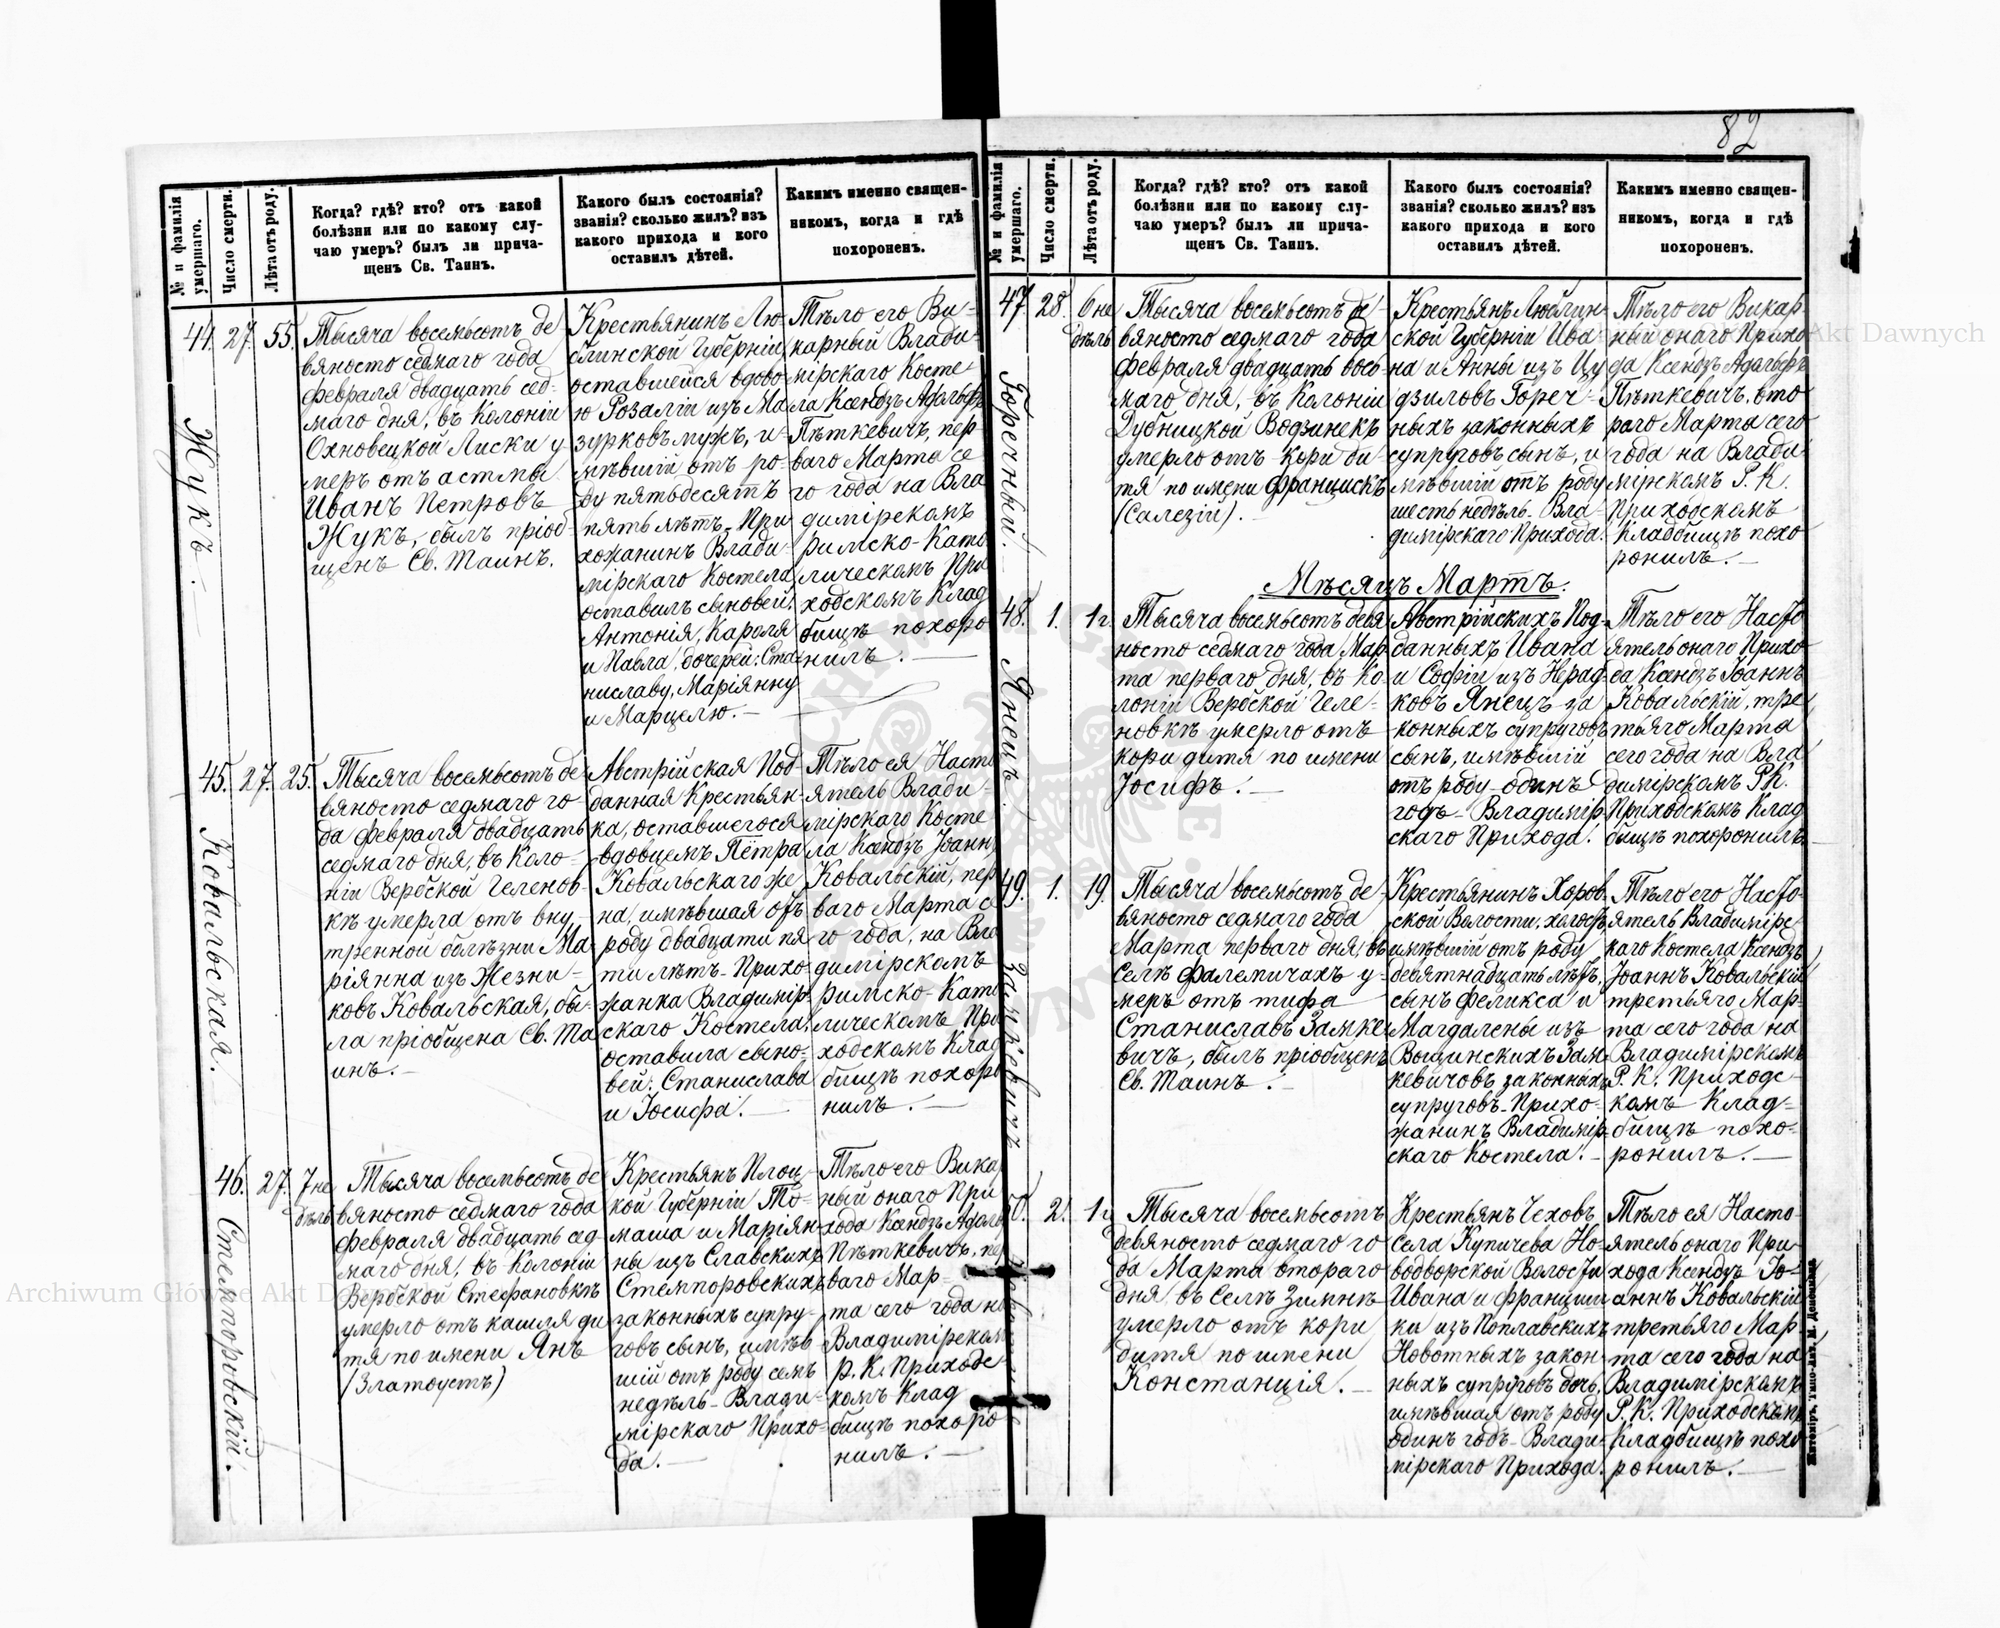 82
№ и фамилія умершаго.
Число смерти.
Лѣта отъ роду.
Когда? гдѣ? кто? отъ какой
болѣзни или по какому слу-
чаю умеръ? былъ ли прича-
щенъ Св. Таинъ.
Какого былъ состоянія?
званія? сколько жилъ? изъ
какого прихода и кого
оставилъ дѣтей.
Каким­ъ именно священ-
никомъ, когда и гдѣ
похороненъ.
44. 27. 55.
Жукъ.
Тысяча восемьсотъ де
вяносто седмаго года
февраля двадцать сед-
маго дня, въ колоніи
Охновецкой Лиски у
меръ отъ астмы
Иванъ Петровъ
Жукъ, былъ пріоб
щенъ Св. Таинъ.
Крестьянинъ Лю-
блинской Губерніи
оставшейся вдово
ю Розаліи изъ Ма
зурковъ мужъ, и-
мѣвшій отъ ро-
ду пятьдесятъ
пять лѣтъ - При
хожанинъ Влади-
мірскаго Костела
оставилъ сыновей:
Антонія, Кароля
и Павла, дочерей: Ста-
ниславу, Маріянну
и Марцелю. —
Тѣло его Ви-
карный Влади-
мірскаго Косте
ла Ксендзъ Адольфъ
Пѣткевичъ, пер-
ваго Марта се
го года на Вла
димірскомъ
Римско-Като
лическомъ При
ходскомъ Клад
бищѣ похоро
нилъ. —
45. 27. 25.
Ковальская.
Тысяча восемьсотъ де-
вяносто седмаго го-
да февраля двадцать
седмаго дня, въ Коло-
ніи Вербской Геленов-
кѣ умерла отъ вну-
тренной болѣзни Ма-
ріянна изъ Жезни-
ковъ Ковальская, бы-
ла пріобщена Св. Та
инъ. —
Австрійская Под-
данная Крестьян-
ка, оставшегося
вдовцемъ Пётра
Ковальскаго же
на, имѣвшая отъ
роду двадцати пя
ти лѣтъ - Прихо-
жанка Владимір-
скаго Костела,
оставила сыно-
вей: Станислава
и Іосифа. —
Тѣло ея Насто
ятель Влади-
мірскаго Косте
ла Ксендзъ Іоаннъ
Ковальскій, пер
ваго Марта с
го года, на Вла
димірскомъ
Римско-Като
лическомъ При
ходскомъ Клад
бищѣ похоро
нилъ. —
46. 27. 7 не
дѣль
Стемпоровскій.
Тысяча восемьсотъ де
вяносто седмаго года
февраля двадцать сед
маго дня, въ Колоніи
Вербской Стефановкѣ
умерло отъ кашля ди
тя по имени Янъ
(Златоустъ)
Крестьянъ Плоц-
кой Губерніи То-
маша и Маріян-
ны изъ Славскихъ
Стемпоровскихъ
законныхъ супру
говъ сынъ, имѣв
шій отъ роду семь
недѣль - Влади-
мірскаго Прихо-
да. —
Тѣло его Вика
ный онаго При
хода Ксендзъ Адоль
Пѣткевичъ, пе
ваго Мар-
та сего года на
Владимірском
Р. К. Приходс-
комъ Клад
бищѣ похоро
нилъ. —
№ и фамилія умершаго.
Число смерти.
Лѣта отъ роду.
Когда? гдѣ? кто? отъ какой
болѣзни или по какому слу-
чаю умеръ? былъ ли прича-
щенъ Св. Таинъ.
Какого былъ состоянія?
званія? сколько жилъ? изъ
какого прихода и кого
оставилъ дѣтей.
Какимъ именно священ-
никомъ, когда и гдѣ
похороненъ.
47. 28. 6 не
дѣль
Горечный.
Тысяча восемьсотъ де-
вяносто седмаго года
февраля двадцать вось
маго дня, въ Колоніи
Дубницкой Водзинекъ
умерло отъ кори ди-
тя по имени Францискъ
(Салезій). —
Крестьянъ Люблин-
ской Губерніи Ива
на и Анны изъ Цу
дзиловъ Гореч-
ныхъ законныхъ
супруговъ сынъ, и
мѣвшій отъ роду
шесть недѣль - Вла-
димірскаго Прихода.
Тѣло его Викар
ный онаго Прихо
да Ксендзъ Адольфъ
Пѣткевичъ, вто
раго Марта сего
года на Влади
мірскомъ Р. К.
Приходскомъ
Кладбищѣ похо
ронилъ. —
Мѣсяцъ Мартъ.
48. 1. 1 г.
Янецъ.
Тысяча восемьсотъ девя
носто седмаго года Мар
та перваго дня, въ Ко
лоніи Вербской Геле-
новкѣ умерло отъ
кори дитя по имени
Іосифъ. —
Австрійскихъ Под-
данныхъ Ивана
и Софіи изъ Нерад-
ковъ Янецъ за
конныхъ супруговъ
сынъ, имѣвшій
отъ роду одинъ
годъ - Владимір
скаго Прихода.
Тѣло его Насто
ятель онаго Прихо
да Ксендзъ Іоаннъ
Ковальскій, тре
тьяго Марта
сего года на Вла
димірскомъ Р.К.
Приходскомъ Клад
бищѣ похоронилъ.
49. 1. 19.
Замкевичъ
Тысяча восемьсотъ де-
вяносто седмаго года
Марта перваго дня, въ
Селѣ Фалемичахъ у-
меръ отъ тифа
Станиславъ Замке
вичъ, былъ пріобщенъ
Св. Таинъ. —
Крестьянинъ Хоров-
ской Волости, холостъ,
имѣвшій отъ роду
девятнадцать лѣтъ,
сынъ Феликса и
Магдалены изъ
Вощинскихъ Зам-
кевичовъ законныхъ
супруговъ - Прихо-
жанинъ Владимір-
скаго Костела. —
Тѣло его Насто-
ятель Владимірс
каго Костела Ксендзъ
Іоаннъ Ковальскій
третьяго Мар-
та сего года на
Владимірскомъ
Р. К. Приходс-
комъ Клад-
бищѣ похо-
ронилъ. —
50. 2. 1 г.
Тысяча восемьсотъ
девяносто седмаго го
да Марта втораго
дня въ Селѣ Зимнѣ
умерло отъ кори
дитя по имени
Констанція. —
Крестьянъ Чеховъ
Села Купичева Но-
водворской Волости
Ивана и Франциш
ки изъ Поплавскихъ
Новотныхъ закон-
ныхъ супруговъ дочь,
имѣвшая отъ роду
одинъ годъ - Влади-
мірскаго Прихода.
Тѣло ея Насто-
ятель онаго При-
хода Ксендзъ Іо-
аннъ Ковальскій
третьяго Мар
та сего года на
Владимірскомъ
Р. К. Приходскомъ
Кладбищѣ похо
ронилъ. —
Archiwum Główne Akt Dawnych